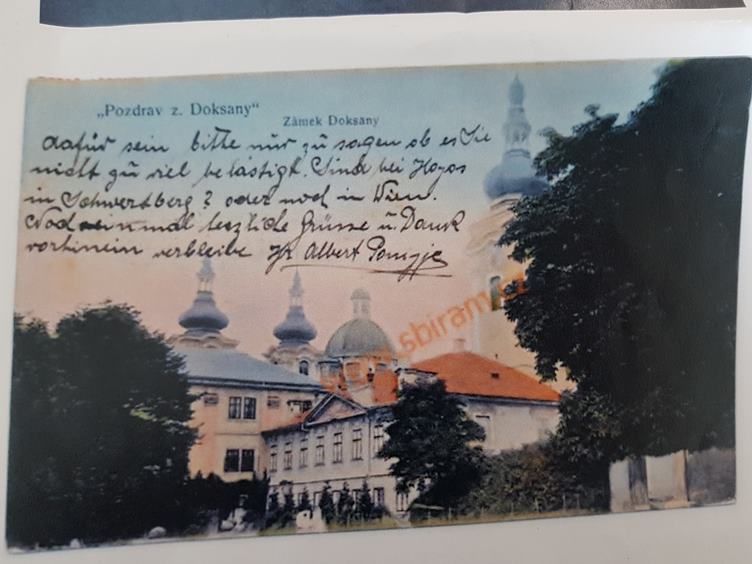 „Pozdrav z. Doksany“
Zámek Doksany
dafür sein bitte nur zu sagen ob es Sie
nicht zu viel belästigt. Sind bei Hoyos
in Schwertberg? oder noch in Wien.
Noch einmal herzliche Grüsse u. Dank
vorhinein verbleibe Ihr Albert
www.sbiram.cz